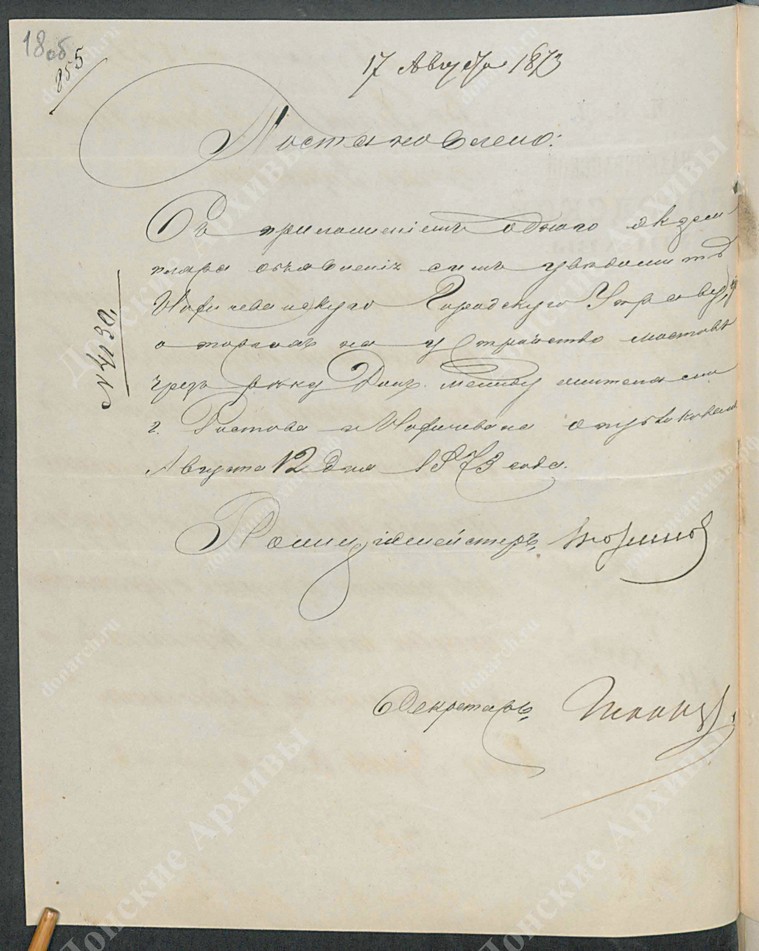 18 об
855
17 Августа 1873
Постановлено:
Съ приложеніемъ одного экзем
пляра объявленія симъ увѣдомить
Нахичеванскую Городскую Управу,
о торгахъ на устройство мостовъ
чрезъ рѣку Донъ. между
г. Ростова и Нахичевана
Августа 12 дня 1873 года.
№ 4130.
Полиціймейстеръ,
Секретарь,
Донские Архивы
donarch.ru